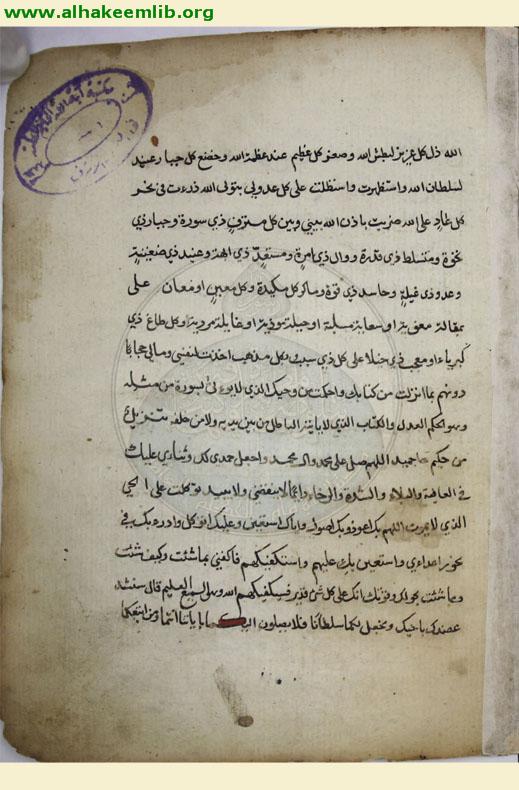 www.alhakeemlib.org
مكتبة آية الله
الله ذل كل عزيز لبطش الله وصغر كل عظيم عند عظمة الله وخضع كل جبار عنيد
لسلطان الله واستظهرت واستطلت على كل عدو لي بتولى الله فدءت في نحر
كل عاد علي الله ضربت باذن الله بيني وبين كل مترف ذي سورة وجبار ذي
نخوة ومتسلط ذي قدرة ووال ذي امرة ومستعد ذي ابهة وعنيد ذي ضغينة
وعدو ذي غيلة وحاسد ذي قوة وماكر كل مكيدة وكل معين او معان على
بمقالة مغوية او سعاية مسلبة او حيلة موذية او غايلة مردية او كل طاغ ذي
كبرياء او معجب ذي خيلاء على كل ذي سبب وبكل مذهب اخذت لنفسي ومالي حجابا
دونهم بما انزلت من كتابك واحكمت من وحيك الذي لا يوتى بسورة من مثله
وهو الحكم العدل والكتاب الذي لا ياتيه الباطل من بين يديه ولا من خلفه تنزيل
من حكيم حميد اللهم صل على محمد وال محمد واجعل حمدي لك وثنائي عليك
في العافية والبلاء والشدة والرخاء دائما لا ينقضي ولا يبيد توكلت على الحي
الذي لا يموت اللهم بك اعوذ وبك اصول واياك استعين وعليك اتوكل وادرء بك في
نحور اعدائي واستعين بك عليهم واستكفيكهم فاكفني بما شئت وكيف شئت
وما شئت بحولك وقوتك انك على كل شئ قدير فسيكفيكهم الله وهو السميع العليم قال سنشد
عضدك باخيك ونجعل لكما سلطانا فلا يصلون اليكما باياتنا انتما ومن اتبعكما